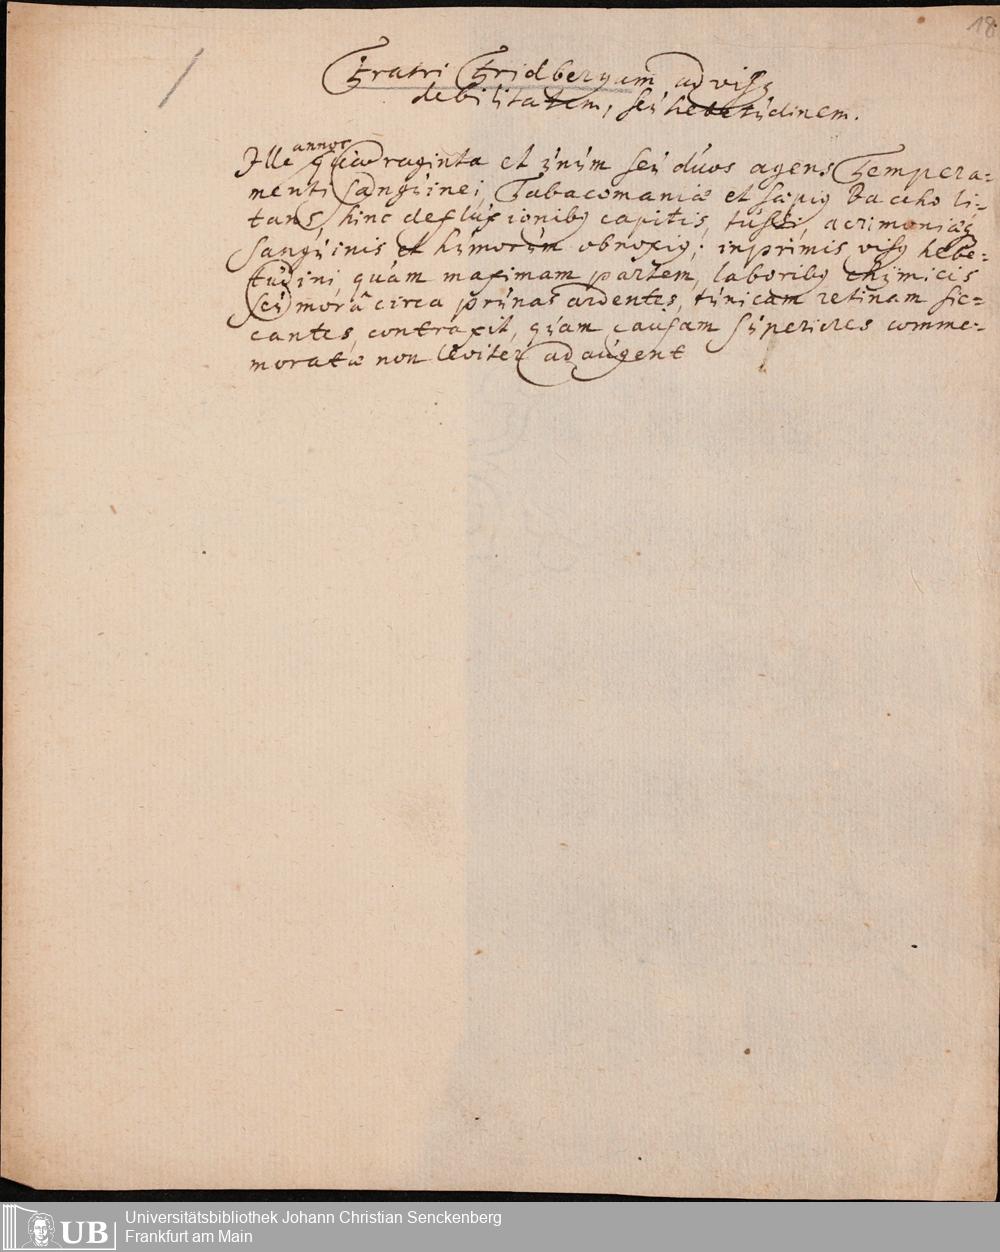 18
Fratri Fridbergam ad visꝯ
debilitatem, seu hebetudinem.
annos
Ille quadraginta et unum seu duos agens Tempera-
menti sanguinei, Tabacomaniæ et sæpiꝯ Baccho li-
tans, hinc defluxionibꝯ capitis, tussi, acrimoniæꝗ
sanguinis et humorum obnoxiꝯ; inprimis visꝯ hebe-
tudini, quam maximam partem, laboribꝯ chymicis
seu morâ circa prunas ardentes, tunicam retinam sic-
cantes, contraxit, quam causam superiores comme-
moratæ non leviter adaugent
UB
Universitätsbibliothek Johann Christian Senckenberg
Frankfurt am Main